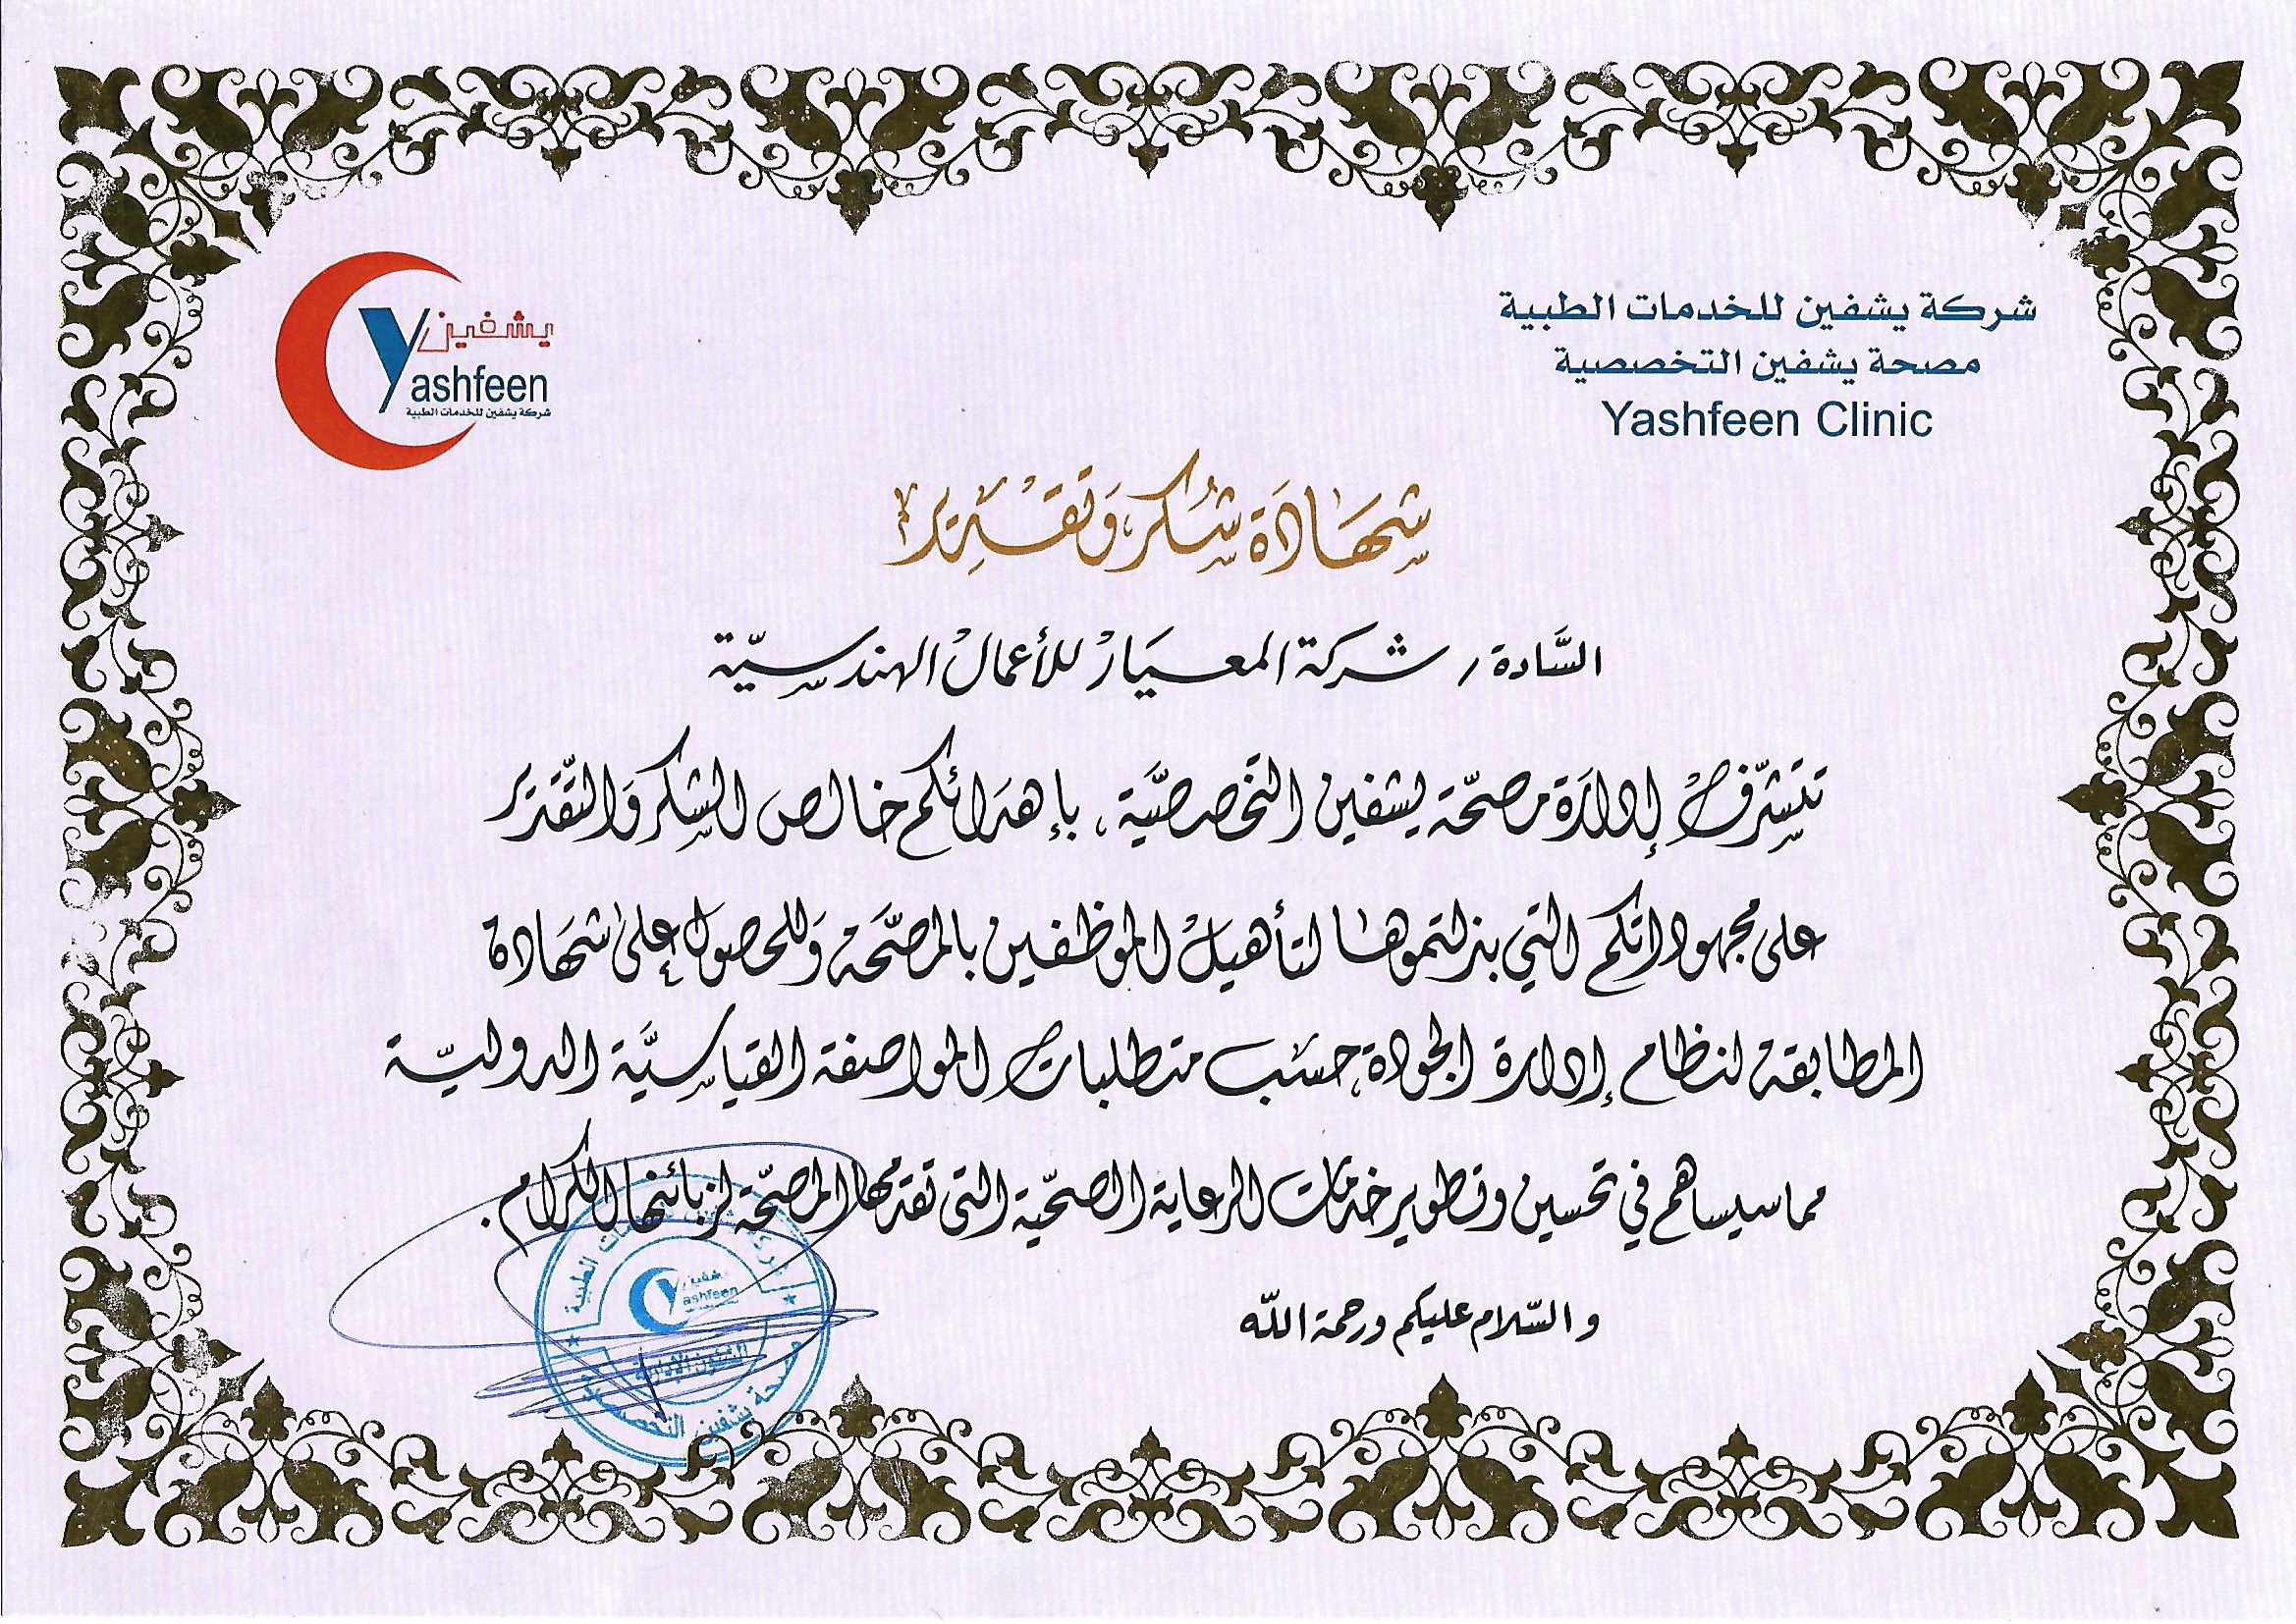 شركة يشفين للخدمات الطبية
مصحة يشفين التخصصية
Yashfeen Clinic
يشفين
Yashfeen
شركة يشفين للخدمات الطبية
شَهَادَة شُكر وَتقْدِير
السَّادة / شركة المعيَارْ للأعمالْ الهندسيّة
تتشرّفْ إدارَة مصحّة يشفين التخصصيَّة ، بإهدَائكم خالص الشكر وَالتّقدير
على مجهوداتكم التي بذلتموها لتأهيلْ الموظفين بالمصّحَة وَللحصول إعلىٰ شهَادة
المطابقة لنظام إدارة الجودة حسَب متطلبات المواصفة القياسيَّة الدوليّة
مما سيساهم في تحسين وتطوير خدمَات الرعاية الصحّية التي تقدمها المصحّة لزبائنها الكرام .
و السّلام عليكم ورحمة اللّه
يشفين
Yashfeen
الطبية
الشئون الإدارية
مصحة يشفين